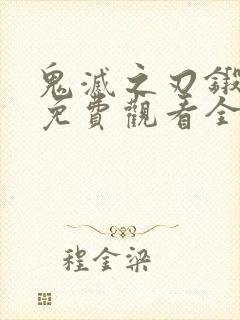 鬼滅之刃鍛
免費觀看全
程金梁